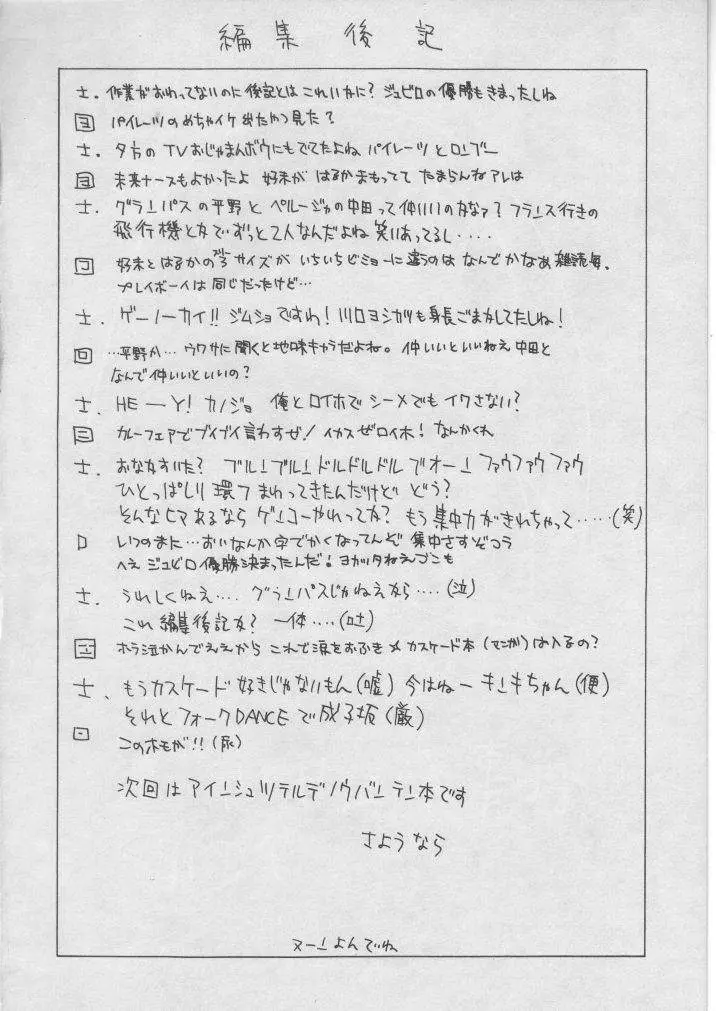 編集後記
士. 作業がおわってないのに後記とはこれいかに? ジュビロの優勝もきまったしね
ヨ パイレーツのめちゃイケ出たやつ見た?
士. 夕方のTVおじゃまんボウにもでてたよね パイレーツとローブー
ヨ 未来ナースもよかったよ 好未が はるかまもってて たまらんねアレは
士. グランパスの平野とペルージャの中田って仲いいのかなァ? フランス行きの
飛行機とかでずっと2人なんだよね 笑いあってるし....
コ 好未とはるかのサイズがいちいちビミョーに違うのはなんでかなあ 雑誌毎.
プレイボーイは同じだったけど...
士. ゲーノーカイ!! ジムショですわ! 川口ヨシカツも身長ごまかしてたしね!
回 ...平野か... ウワサに聞くと地味キャラだよね。仲いいといいねえ中田と
なんで仲いいといいの?
士. HEーY! カノジョ 俺とロイホでシーメでもイワさない?
三 カレーフェアでブイブイ言わすぜ! イカスぜロイホ! なんかくれ
士. おなかすいた? ブルンブルンドルドルドルでオーン ファウファウファウ
ひとっぱしり環7まわってきたんだけど どう?
そんなヒマあるならゲンコーやれってか? もう集中力がきれちゃって.....(笑)
ロ いつのまに...おいなんか字でかくなってんぞ 集中さすぞコラ
へえ ジュビロ優勝決まったんだ! ヨカッタねえどこも
士. うれしくねえ.... グランパスじゃねえなら....(泣)
これ編集後記か? 一体....(吐)
ホラ泣かんでええから これで涙をおふき メ カスケード本(マンガ)は入るの?
士. もうカスケード好きじゃないもん(嘘) 今はねーキンキちゃん(便)
それとフォークDANCEで成子坂(厳)
ロ このホモが!!(尿)
次回はアインシュツテルデノウバンテン本です
さようなら
ヌーンよんでね